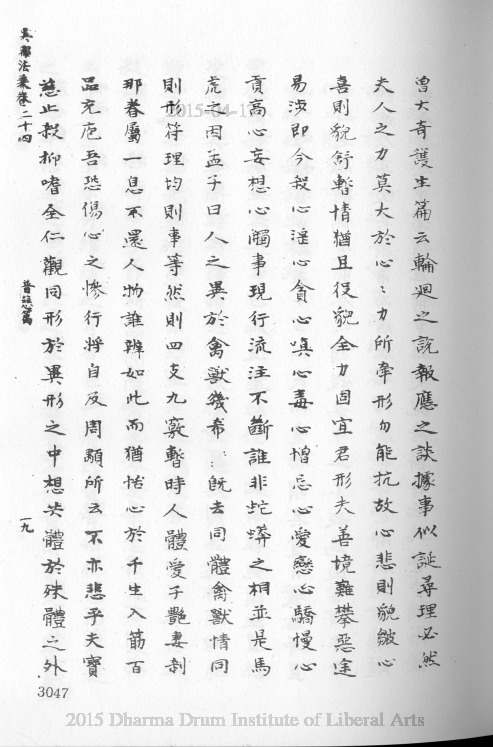 曾大奇護生篇云輪迴之說報應之談據事似誕尋理必然
夫人之力莫大於心〻力所牽形勿能抗故心悲則貌皺心
喜則貌舒暫情猶且役貌全力固宜君形夫善境難攀惡途
易涉即今殺心淫心貪心嗔心毒心憎忌心愛戀心驕慢心
貢高心妄想心觸事現行流注不斷誰非蛇蟒之相並是馬
虎之因孟子曰人之異於禽獸幾希〻既去同體禽獸情同
則形符理均則事等然則四支九竅暫時人體愛子艷妻剎
那眷屬一息不還人物誰辨如此而猶恬心於千生入筋百
品充庖吾恐傷心之慘行將自及周顒所云不亦悲乎夫寶
慈止殺抑嗜全仁觀同形於異形之中想共體於殊體之外
吳都法乘卷二十四
普慈篇
一九
3047
2015-04-17
2015 Dharma Drum Institute of Liberal Arts